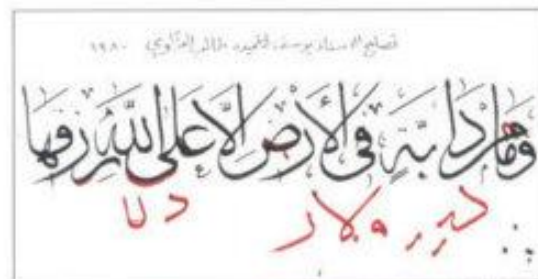 تصليح الاستاذ يوسف للتلميذ طالب العزاوي ١٩٨٠
وَمَا مِنْ دَابَّةٍ فِي الْأَرْضِ إِلَّا عَلَى اللَّهِ رِزْقُهَا